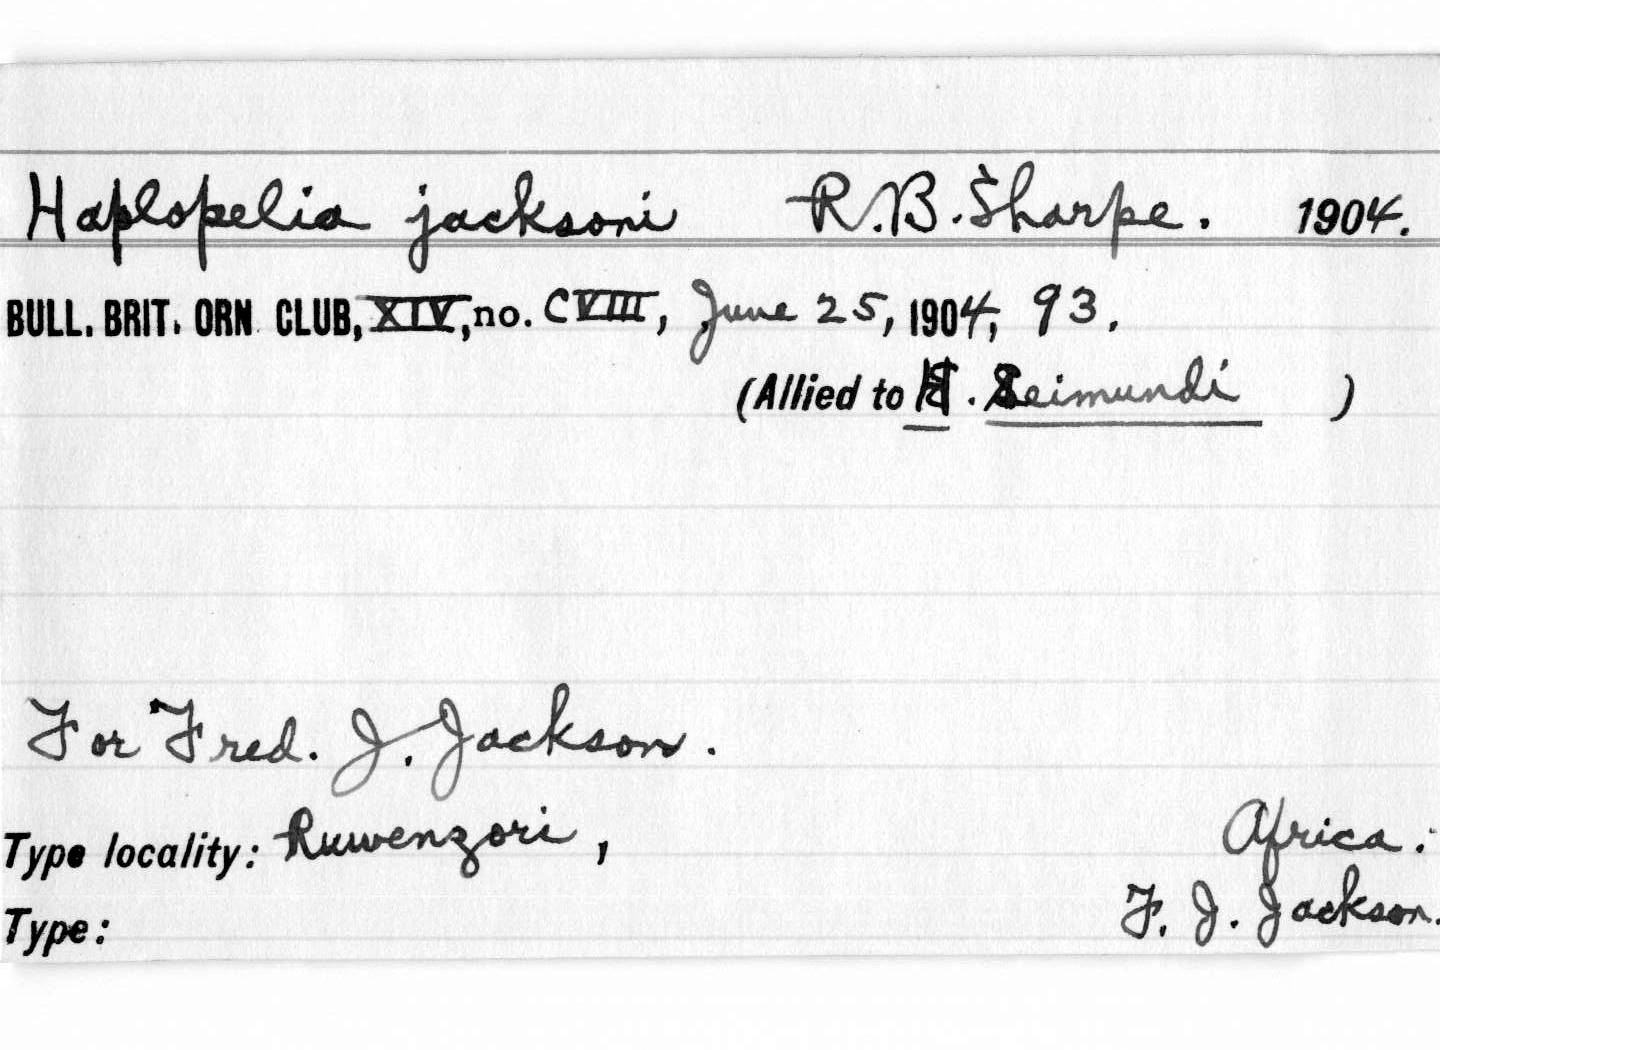 Haplopelia jacksoni R.B. Sharpe. 1904.
BULL. BRIT. ORN. CLUB, XIV, no. CVIII, June 25, 1904, 93.
(Allied to H. Seimundi )
For Fred. J. Jackson.
Type locality: Ruwenzori, Africa:
Type: F. J. Jackson.